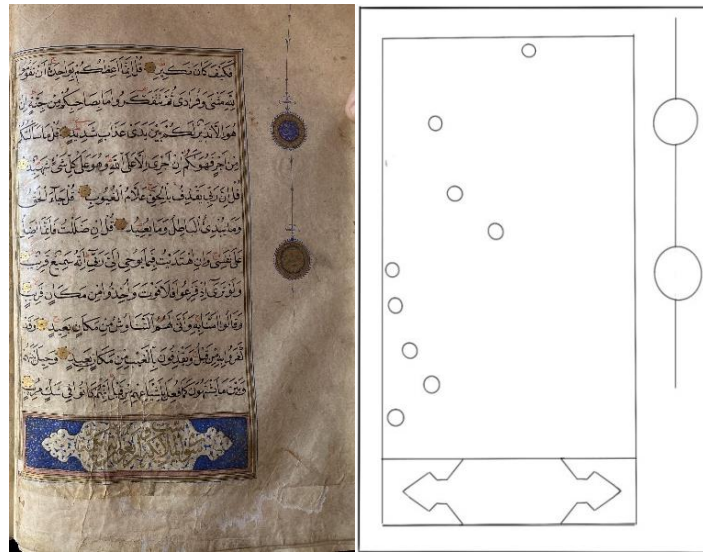 فكيف كان نكير قل انما اعظكم بواحدة ان تقوموا
لله مثنى وفرادى ثم تتفكروا ما بصاحبكم من جنة ان
هو الا نذير لكم بين يدى عذاب شديد قل ما سالتكم
من اجر فهو لكم ان اجرى الا على الله وهو على كل شىء شهيد
قل ان ربى يقذف بالحق علام الغيوب قل جاء الحق
وما يبدئ الباطل وما يعيد قل ان ضللت فانما اضل
على نفسى وان اهتديت فبما يوحى الى ربى انه سميع قريب
ولو ترى اذ فزعوا فلا فوت واخذوا من مكان قريب
وقالوا امنا به وانى لهم التناوش من مكان بعيد وقد
كفروا به من قبل ويقذفون بالغيب من مكان بعيد وحيل بينهم
وبين ما يشتهون كما فعل باشياعهم من قبل انهم كانوا فى شك مريب